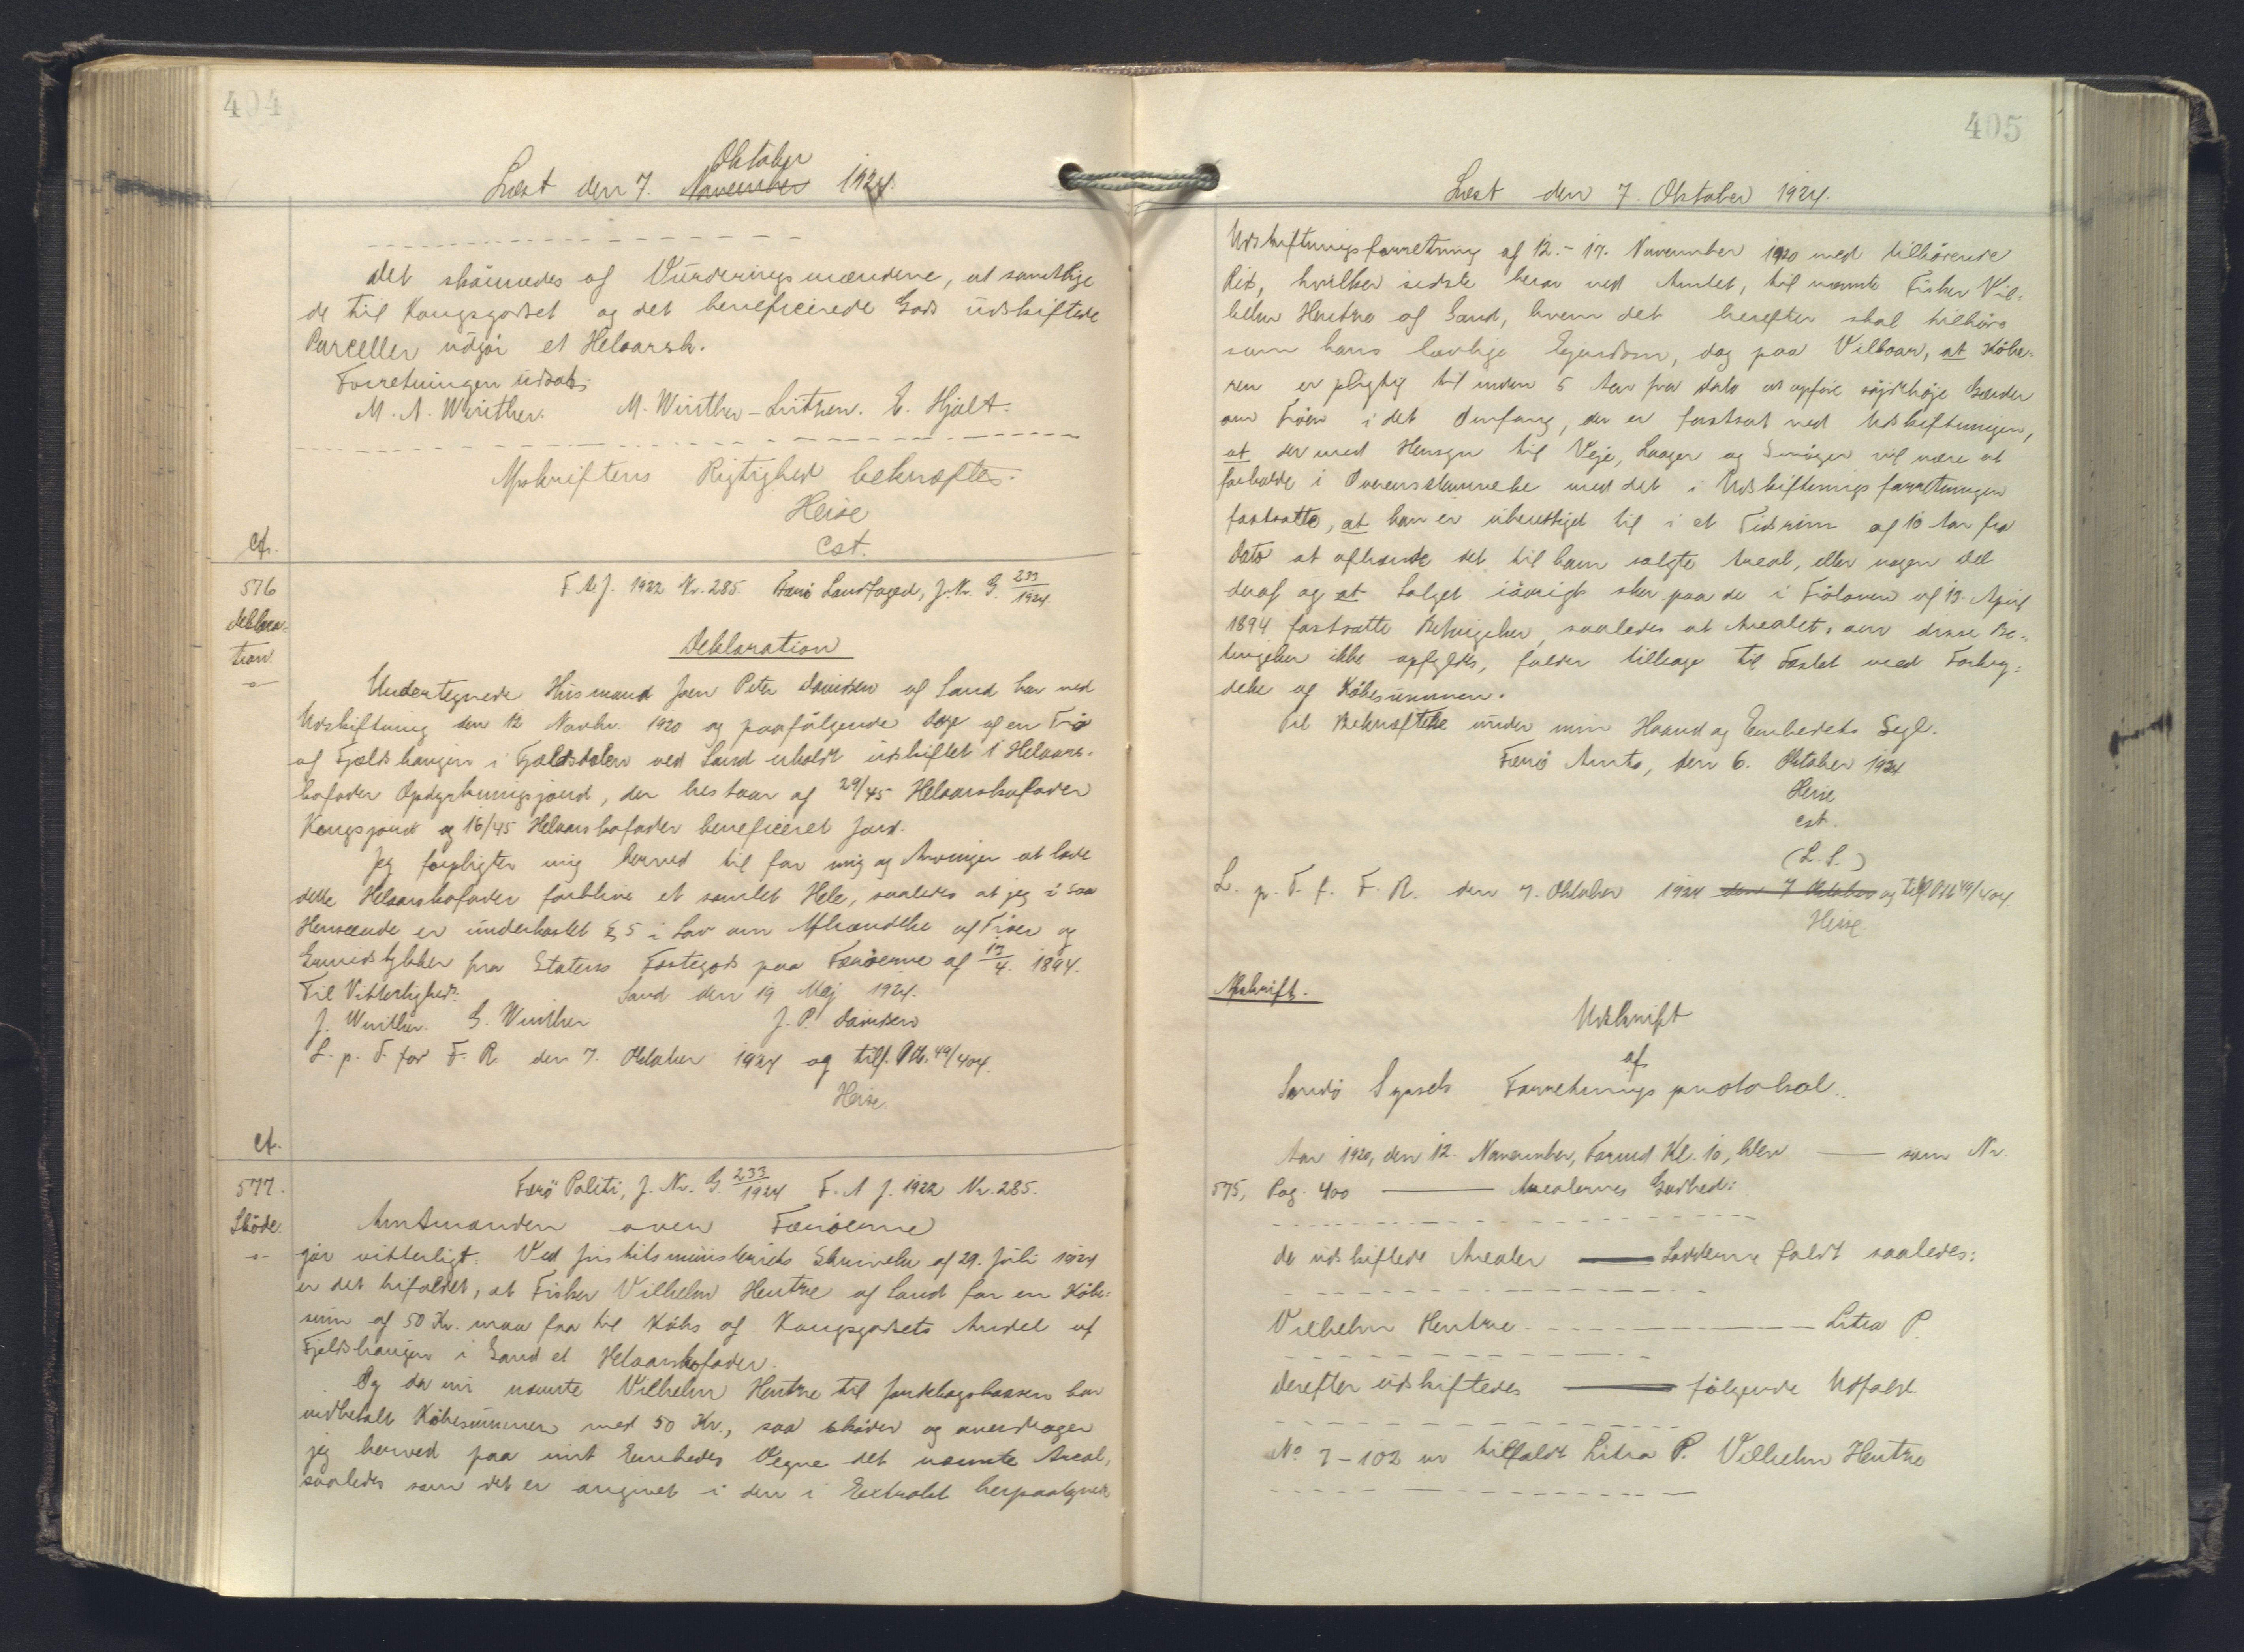 404
Læst den 7. November Oktober 1924.
Det skönnedes af Vurderingsmændene, at samtlige
de til Kongsgodset og det beneficerede Gods udskiftede
Parceller udgjör et Helaarsk.
Forretningen udsat.
M. A. Winther. M. Winther-Lützen. E. Hjalt.
Afskriftens Rigtighed bekræftes.
Heise
cst.
Ct.
576
Deklara-
tion.
F. A. J. 1922 Nr. 285. Færö Landfoged, J. Nr. G. 233/1924
Deklaration
Undertegnede Husmand Joen Peter Davidsen af Sand har ved
Udskiftning den 12 Novbr. 1920 og paafölgende Dage af en Trö
af Fjeldshaugin i Fjældsdalen ved Sand erholdt udskiftet 1 Helaars-
kofoder Opdyrkningsjord, der bestaar af 29/45 Helaarskofoder
Kongsjord og 16/45 Helaarskofoder beneficeret Jord.
Jeg forpligter mig herved til for mig og Arvinger at lade
dette Helaarskofoder forblive et samlet Hele, saaledes at jeg i saa
Henseende er underkastet § 5 i Lov om Afhændelse af Tröer og
Grundstykker fra Statens Fæstegods paa Færöerne af 13/4. 1894.
Til Vitterlighed: Sand den 19 Maj 1924.
J. Winther. G. Winther J. P. Davidsen
L. p. T. for F. R. den 7. Oktober 1924 og tilf. Ptb. 49/404.
Heise.
Ct.
577.
Sköde.
Færö Politi, J. Nr. G. 233/1924 F. A. J. 1922 Nr. 285.
Amtmanden over Færöerne
gör vitterligt: Ved Justitsministeriets Skrivelse af 29. Juli 1924
er det bifaldet, at Fisker Vilhelm Hentze af Sand for en Köbe-
sum af 50 Kr. maa faa til Köbs af Kongsgodsets Andel af
Fjeldshaugin i Sand et Helaarskofoder.
Og da nu nævnte Vilhelm Hentze til Jordebogskassen har
indbetalt Köbesummen med 50 Kr., saa sköder og overdrager
jeg herved paa mit Embedes Vegne det nævnte Areal,
saaledes som det er angivet i den i Extrakt herpaategnede
405
Læst den 7. Oktober 1924.
Udskiftningsforretning af 12.-17. November 1920 med tilhörende
Rids, hvilket sidste beror ved Amtet, til nævnte Fisker Vil-
helm Hentze af Sand, hvem det herefter skal tilhöre
som hans lovlige Ejendom, dog paa Vilkaar, at Köbe-
ren er pligtig til inden 5 Aar fra Dato at opföre söjdhöje Gærder
om Tröen i det Omfang, der er fastsat ved Udskiftningen,
at der med Hensyn til Veje, Laager og Smöger vil være at
forholde i Overensstemmelse med det i Udskiftningsforretningen
fastsatte, at han er uberettiget til i et Tidsrum af 10 Aar fra
Dato at afhænde det til ham solgte Areal, eller nogen Del
deraf og at Salget iövrigt sker paa de i Tröloven af 13. April
1894 fastsatte Betingelser, saaledes at Arealet, om disse Be-
tingelser ikke opfyldes, falder tilbage til Fæstet med Forbry-
delse af Köbesummen.
Til Bekræftelse under min Haand og Embedets Segl.
Færö Amt, den 6. Oktober 1924
Heise
cst.
(L. S.)
L. p. T. f. F. R. den 7. Oktober 1924 den 7 Oktober og tilf. Ptb 49/404.
Heise
Afskrift.
Udskrift
af
Sandö Syssels Forretningsprotokol.
Aar 1920, den 12. November, Formd. Kl. 10, blev —— som Nr.
575, Pag. 400 —— Arealernes Godhed:
de udskiftede Arealer —— Lodderne faldt saaledes:
Vilhelm Hentze —— Litra P.
Derefter udskiftedes —— fölgende Udfald
No 7-102 m tilfaldt Litra P. Vilhelm Hentze